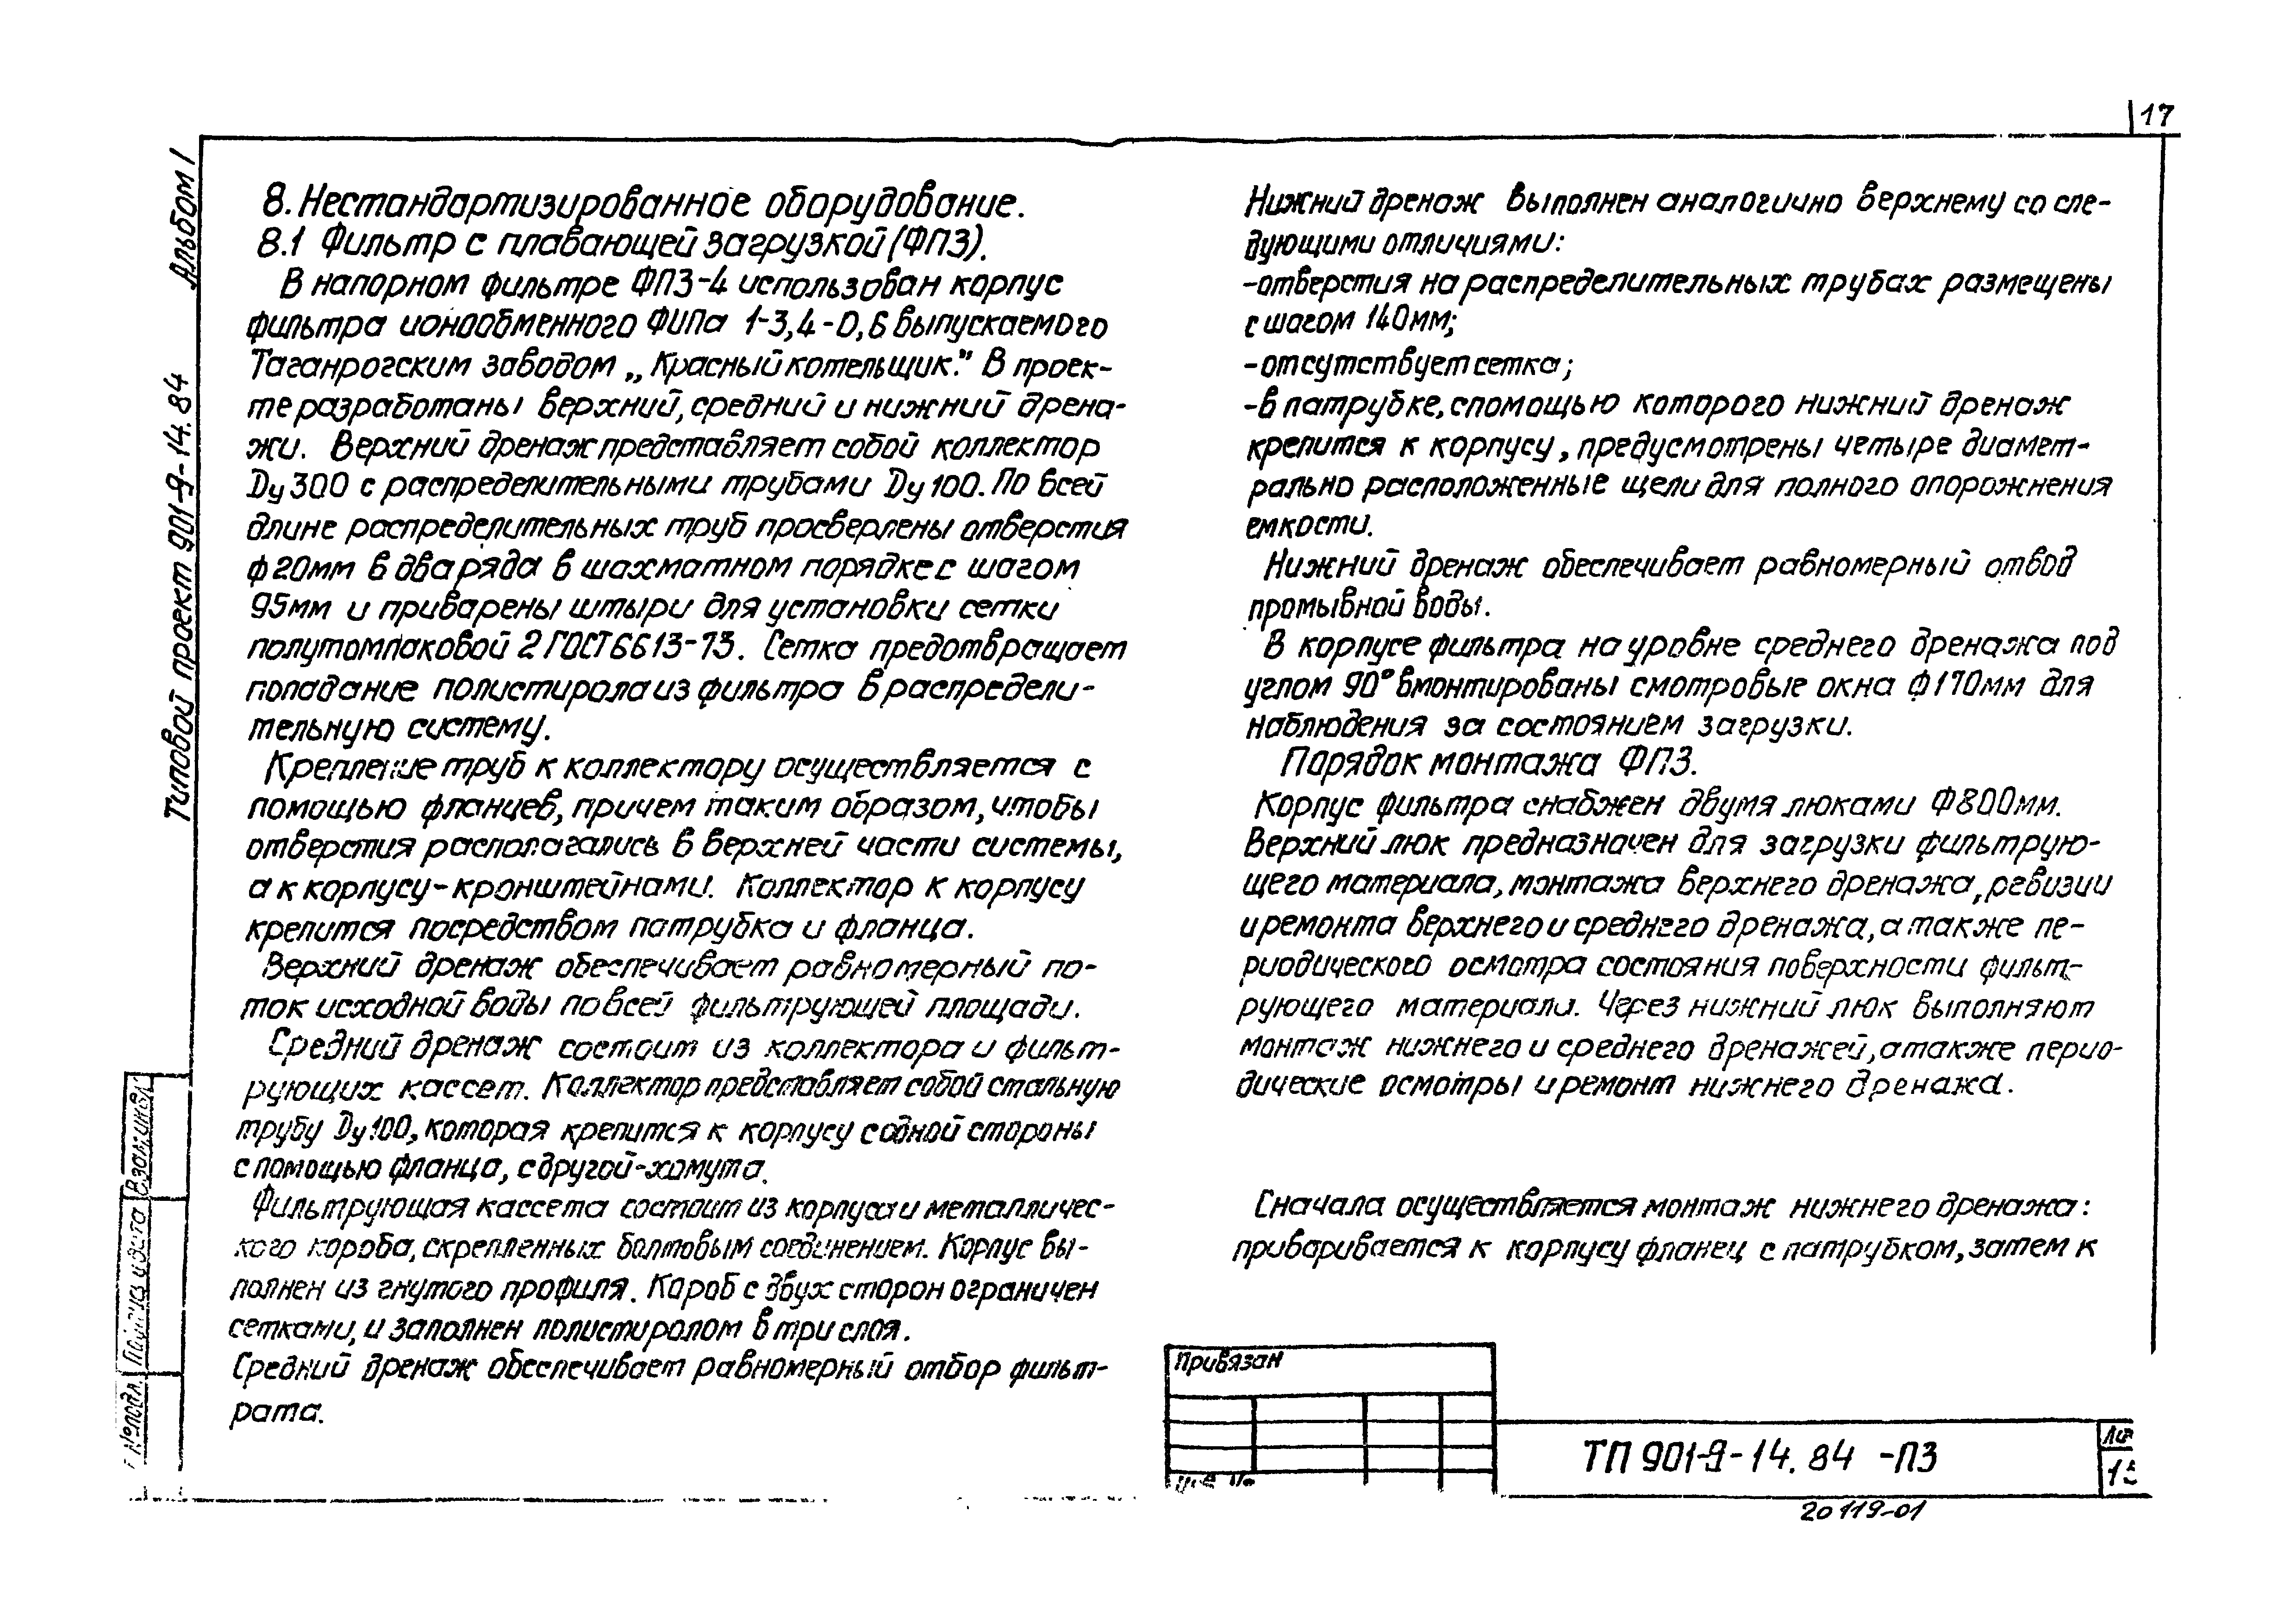 17
Альбом I
Типовой проект 901-9-14.84
8. Нестандартизированное оборудование.
8.1 Фильтр с плавающей загрузкой (ФПЗ).
В напорном фильтре ФПЗ-4 использован корпус
фильтра ионообменного ФИПа 1-3,4-0,6 выпускаемого
Таганрогским заводом „Красный котельщик". В проек-
те разработаны верхний, средний и нижний дрена-
жи. Верхний дренаж представляет собой коллектор
Dу 300 с распределительными трубами Dу 100. По всей
длине распределительных труб просверлены отверстия
ф 20мм в два ряда в шахматном порядке с шагом
95мм и приварены штыри для установки сетки
полутомпаковой 2 ГОСТ 6613-73. Сетка предотвращает
попадание полистирола из фильтра в распредели-
тельную систему.
Крепление труб к коллектору осуществляется с
помощью фланцев, причем таким образом, чтобы
отверстия располагались в верхней части системы,
а к корпусу-кронштейнами. Коллектор к корпусу
крепится посредством патрубка и фланца.
Верхний дренаж обеспечивает равномерный по-
ток исходной воды по всей фильтрующей площади.
Средний дренаж состоит из коллектора и фильт-
рующих кассет. Коллектор представляет собой стальную
трубу Dу 100, которая крепится к корпусу с одной стороны
с помощью фланца, с другой-хомута.
Фильтрующая кассета состоит из корпуса и металличес-
кого короба, скрепленных болтовым соединением. Корпус вы-
полнен из гнутого профиля. Короб с двух сторон ограничен
сетками, и заполнен полистиролом в три слоя.
Средний дренаж обеспечивает равномерный отбор фильт-
рата.
Нижний дренаж выполнен аналогично верхнему со сле-
дующими отличиями:
-отверстия на распределительных трубах размещены
с шагом 140мм;
-отсутствует сетка;
-в патрубке, с помощью которого нижний дренаж
крепится к корпусу, предусмотрены четыре диамет-
рально расположенные щели для полного опорожнения
емкости.
Нижний дренаж обеспечивает равномерный отвод
промывной воды.
В корпусе фильтра на уровне среднего дренажа под
углом 90° вмонтированы смотровые окна ф 170мм для
наблюдения за состоянием загрузки.
Порядок монтажа ФПЗ.
Корпус фильтра снабжен двумя люками Ф 800мм.
Верхний люк предназначен для загрузки фильтрую-
щего материала, монтажа верхнего дренажа, ревизии
и ремонта верхнего и среднего дренажа, а также пе-
риодического осмотра состояния поверхности фильт-
рующего материала. Через нижний люк выполняют
монтаж нижнего и среднего дренажей, а также перио-
дические осмотры и ремонт нижнего дренажа.
Сначала осуществляется монтаж нижнего дренажа:
приваривается к корпусу фланец с патрубком, затем к
Привязан
ТП 901-9-14.84 -ПЗ
20119-01
Взам.инв.
Подпись и дата
№ подл.